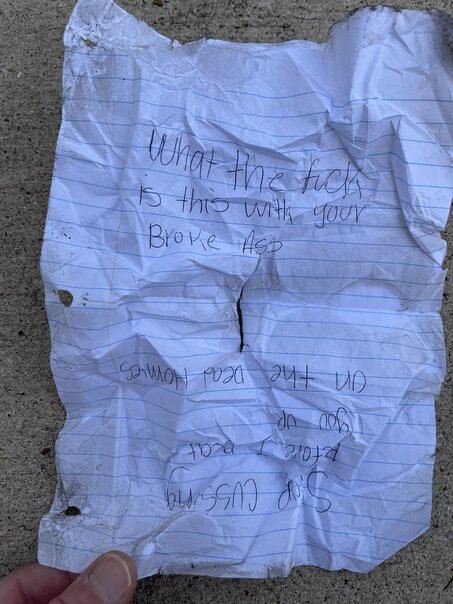 What the fuck
is this with your
Broke Ass
Stop cussing
before I beat
you up
on the Dead Homies